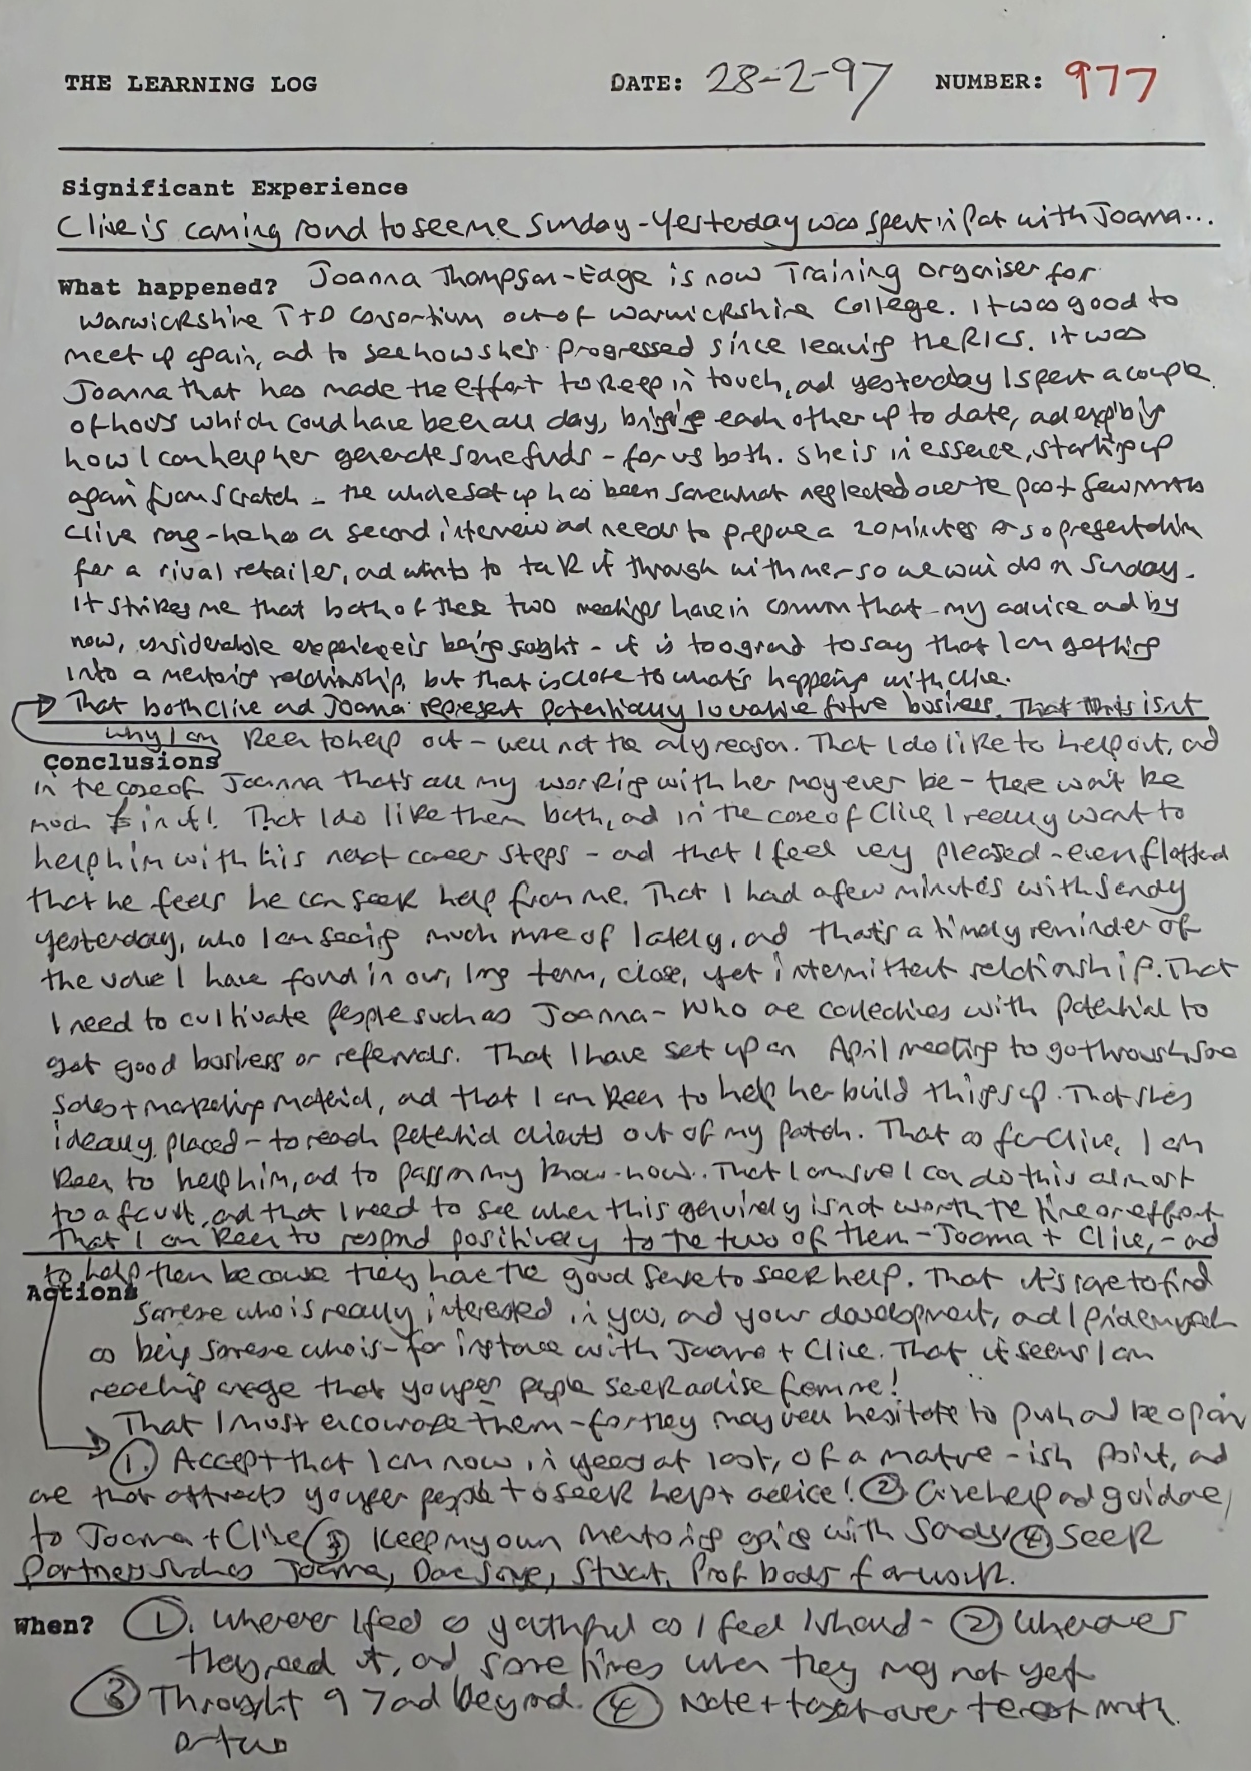 THE LEARNING LOG DATE: 28-2-97 NUMBER: 977
Significant Experience
Clive is coming round to see me Sunday - Yesterday was spent in part with Joanna...
What happened? Joanna Thompson-Edge is now Training Organiser for
Warwickshire T+D Consortium out of Warwickshire College. It was good to
meet up again, and to see how she's progressed since leaving the RICS. It was
Joanna that has made the effort to keep in touch, and yesterday I spent a couple
of hours which could have been all day, bringing each other up to date, and exploring
how I can help her generate some funds - for us both. She is in essence, starting up
again from scratch - the whole set up has been somewhat neglected over the past few months
Clive rang - he has a second interview and needs to prepare a 20 minutes or so presentation
for a rival retailer, and wants to talk it through with me - so we will do on Sunday.
It strikes me that both of these two meetings have in common that my advice and by
now, considerable experience is being sought - it is too grand to say that I am getting
into a mentoring relationship, but that is close to what's happening with Clive.
That both Clive and Joanna represent potentially lucrative future business. That this isn't
why I am keen to help out - well not the only reason. That I do like to help out, and
Conclusions
in the case of Joanna that's all my working with her may ever be - there won't be
much £ in it! That I do like them both, and in the case of Clive, I really want to
help him with his next career steps - and that I feel very pleased - even flattered
that he feels he can seek help from me. That I had a few minutes with Sandy
yesterday, who I am seeing much more of lately, and that's a timely reminder of
the value I have found in our, long term, close, yet intermittent relationship. That
I need to cultivate people such as Joanna - who are collectives with potential to
get good business or referrals. That I have set up an April meeting to go through some
sales + marketing material, and that I am keen to help her build things up. That she's
ideally placed - to reach potential clients out of my patch. That as for Clive, I am
keen to help him, and to pass on my know-how. That I am sure I can do this almost
to a fault, and that I need to see when this genuinely is not worth the time or effort
That I am keen to respond positively to the two of them - Joanna + Clive, - and
to help them because they have the good sense to seek help. That it's rare to find
Actions
someone who is really interested in you, and your development, and I pride myself
as being someone who is - for instance with Joanna + Clive. That it seems I am
reaching an age that younger people seek advise from me!
That I must encourage them - for they may well hesitate to push and be open
1. Accept that I am now, in years at least, of a mature-ish point, and
one that attracts younger people to seek help + advice! 2 Give help and guidance,
to Joanna + Clive 3 Keep my own mentoring going with Sandy 4 Seek
partners such as Joanna, Stuart, Prof bods for work.
When? 1. Whenever I feel as youthful as I feel I should - 2 Whenever
they need it, and sometimes when they may not yet
3 Throught 97 and beyond. 4 Note + target over the next month
or two